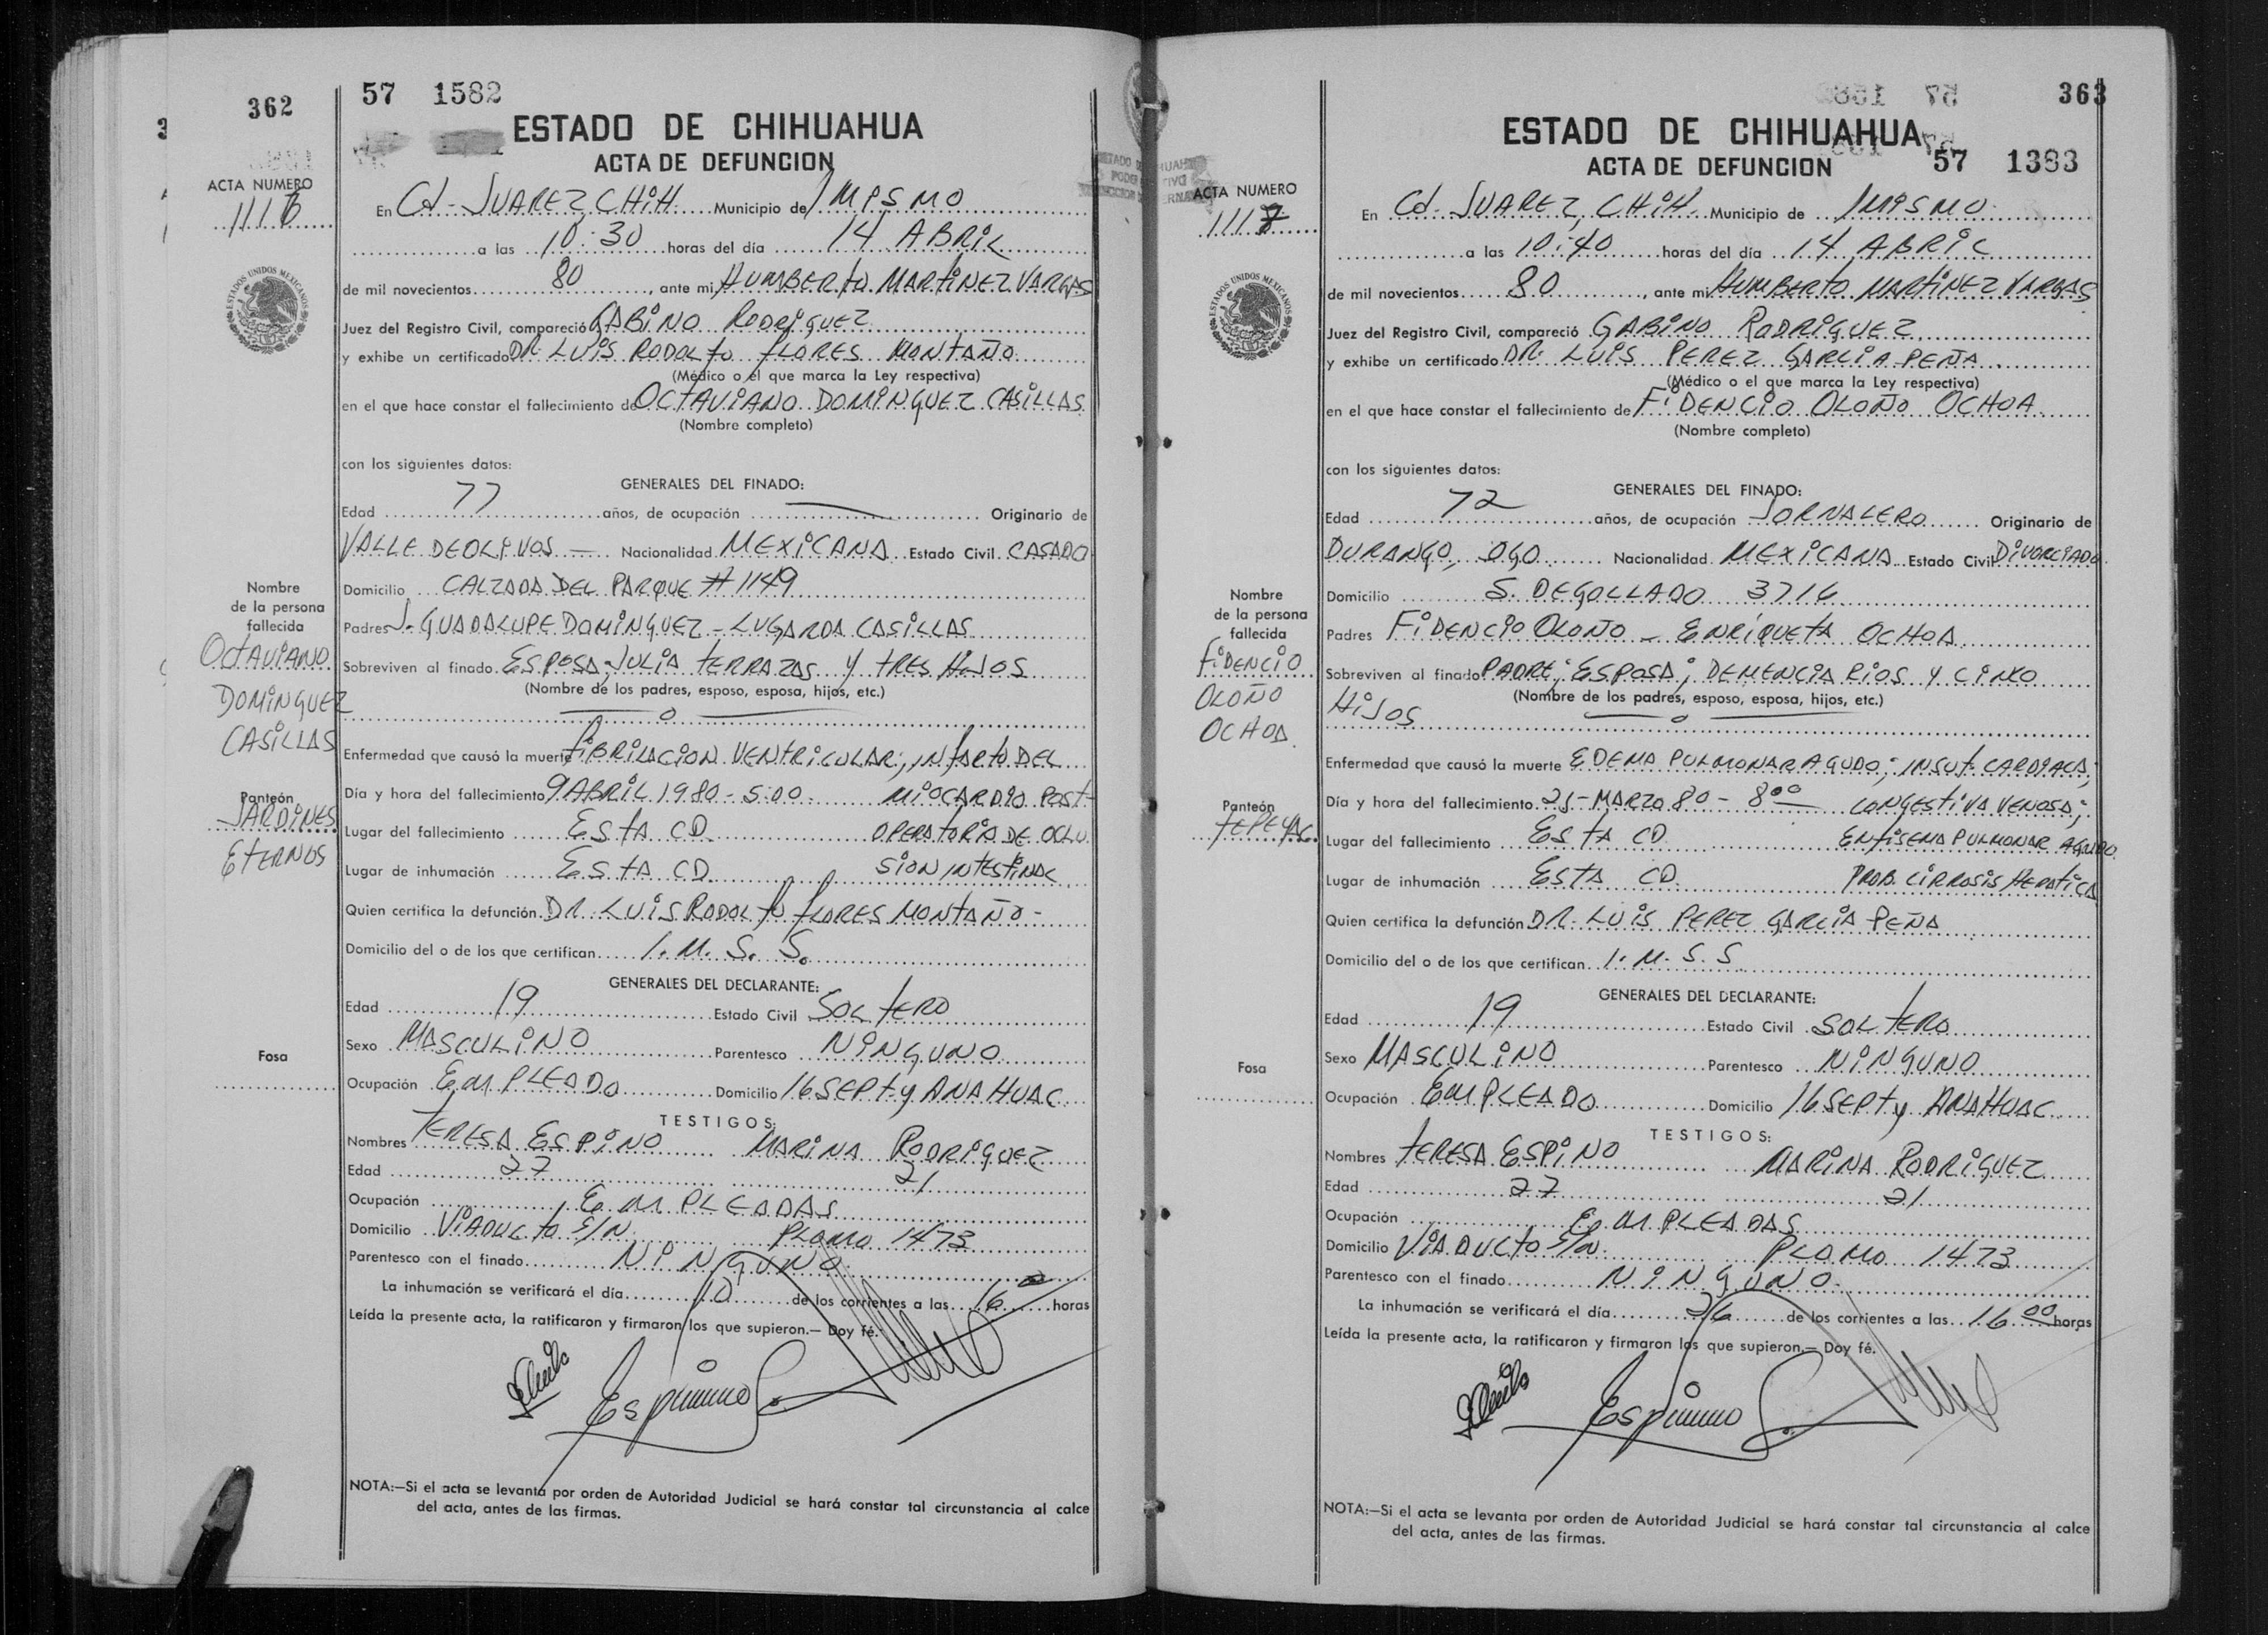 362
57 1582
ESTADO DE CHIHUAHUA
ACTA DE DEFUNCION
ACTA NUMERO
1116
En Cd. JUAREZ, CHIH. Municipio de MISMO
a las 10:30 horas del día 14 ABRIL
de mil novecientos 80, ante mi HUMBERTO MARTINEZ VARGAS
Juez del Registro Civil, compareció GABINO RODRIGUEZ
y exhibe un certificado DR. LUIS RODOLFO FLORES MONTAÑO
(Médico o el que marca la Ley respectiva)
en el que hace constar el fallecimiento de OCTAVIANO DOMINGUEZ CASILLAS
(Nombre completo)
con los siguientes datos:
GENERALES DEL FINADO:
Edad 77 años, de ocupación — Originario de
VALLE DE OLIVOS — Nacionalidad MEXICANA Estado Civil CASADO
Domicilio CALZADA DEL PARQUE #1149
Padres J. GUADALUPE DOMINGUEZ - LUGARDA CASILLAS
Sobreviven al finado ESPOSA; JULIA TERRAZAS Y TRES HIJOS
(Nombre de los padres, esposo, esposa, hijos, etc.)
Nombre
de la persona
fallecida
OCTAVIANO
DOMINGUEZ
CASILLAS
Enfermedad que causó la muerte FIBRILACION VENTRICULAR; INFARTO DEL
Día y hora del fallecimiento 9 ABRIL 1980 - 5:00 MIOCARDIO POST-
Lugar del fallecimiento ESTA CD. OPERATORIA DE OCLU
Lugar de inhumación ESTA CD. SION INTESTINAL
Panteón
JARDINES
ETERNOS
Quien certifica la defunción DR. LUIS RODOLFO FLORES MONTAÑO -
Domicilio del o de los que certifican I. M. S. S.
GENERALES DEL DECLARANTE:
Edad 19 Estado Civil SOLTERO
Sexo MASCULINO Parentesco NINGUNO
Fosa
Ocupación EMPLEADO Domicilio 16 SEPT. y ANAHUAC
TESTIGOS:
Nombres TERESA ESPINO MARINA RODRIGUEZ
Edad 27 21
Ocupación EMPLEADAS
Domicilio VIADUCTO S/N PLOMO 1473
Parentesco con el finado NINGUNO
La inhumación se verificará el día 10 de los corrientes a las 16 00 horas
Leída la presente acta, la ratificaron y firmaron los que supieron.— Doy fé.
NOTA:—Si el acta se levanta por orden de Autoridad Judicial se hará constar tal circunstancia al calce
del acta, antes de las firmas.
363
ESTADO DE CHIHUAHUA
ACTA DE DEFUNCION 57 1383
ACTA NUMERO
1117
En Cd. JUAREZ, CHIH. Municipio de MISMO
a las 10:40 horas del día 14 ABRIL
de mil novecientos 80, ante mi HUMBERTO MARTINEZ VARGAS
Juez del Registro Civil, compareció GABINO RODRIGUEZ
y exhibe un certificado DR. LUIS PEREZ GARCIA PEÑA
(Médico o el que marca la Ley respectiva)
en el que hace constar el fallecimiento de FIDENCIO OLOÑO OCHOA
(Nombre completo)
con los siguientes datos:
GENERALES DEL FINADO:
Edad 72 años, de ocupación JORNALERO Originario de
DURANGO, DGO Nacionalidad MEXICANA Estado Civil DIVORCIADO
Domicilio S. DEGOLLADO 3716
Padres FIDENCIO OLOÑO - ENRIQUETA OCHOA
Sobreviven al finado PADRE; ESPOSA; DEMENCIA RIOS Y CINCO
(Nombre de los padres, esposo, esposa, hijos, etc.)
HIJOS
Nombre
de la persona
fallecida
FIDENCIO
OLOÑO
OCHOA
Enfermedad que causó la muerte EDEMA PULMONAR AGUDO; INSUF. CARDIACA;
Día y hora del fallecimiento 25-MARZO 80 - 8 00 CONGESTIVA VENOSA;
Lugar del fallecimiento ESTA CD. ENFISEMA PULMONAR AGUDO
Lugar de inhumación ESTA CD. PROB. CIRROSIS HEPATICA
Panteón
TEPEYAC
Quien certifica la defunción DR. LUIS PEREZ GARCIA PEÑA
Domicilio del o de los que certifican I. M. S. S
GENERALES DEL DECLARANTE:
Edad 19 Estado Civil SOLTERO
Sexo MASCULINO Parentesco NINGUNO
Fosa
Ocupación EMPLEADO Domicilio 16 SEPT y ANAHUAC
TESTIGOS:
Nombres TERESA ESPINO MARINA RODRIGUEZ
Edad 27 21
Ocupación EMPLEADAS
Domicilio VIADUCTO S/N. PLOMO 1473
Parentesco con el finado NINGUNO
La inhumación se verificará el día 26 de los corrientes a las 16 00 horas
Leída la presente acta, la ratificaron y firmaron los que supieron.— Doy fé.
NOTA:—Si el acta se levanta por orden de Autoridad Judicial se hará constar tal circunstancia al calce
del acta, antes de las firmas.